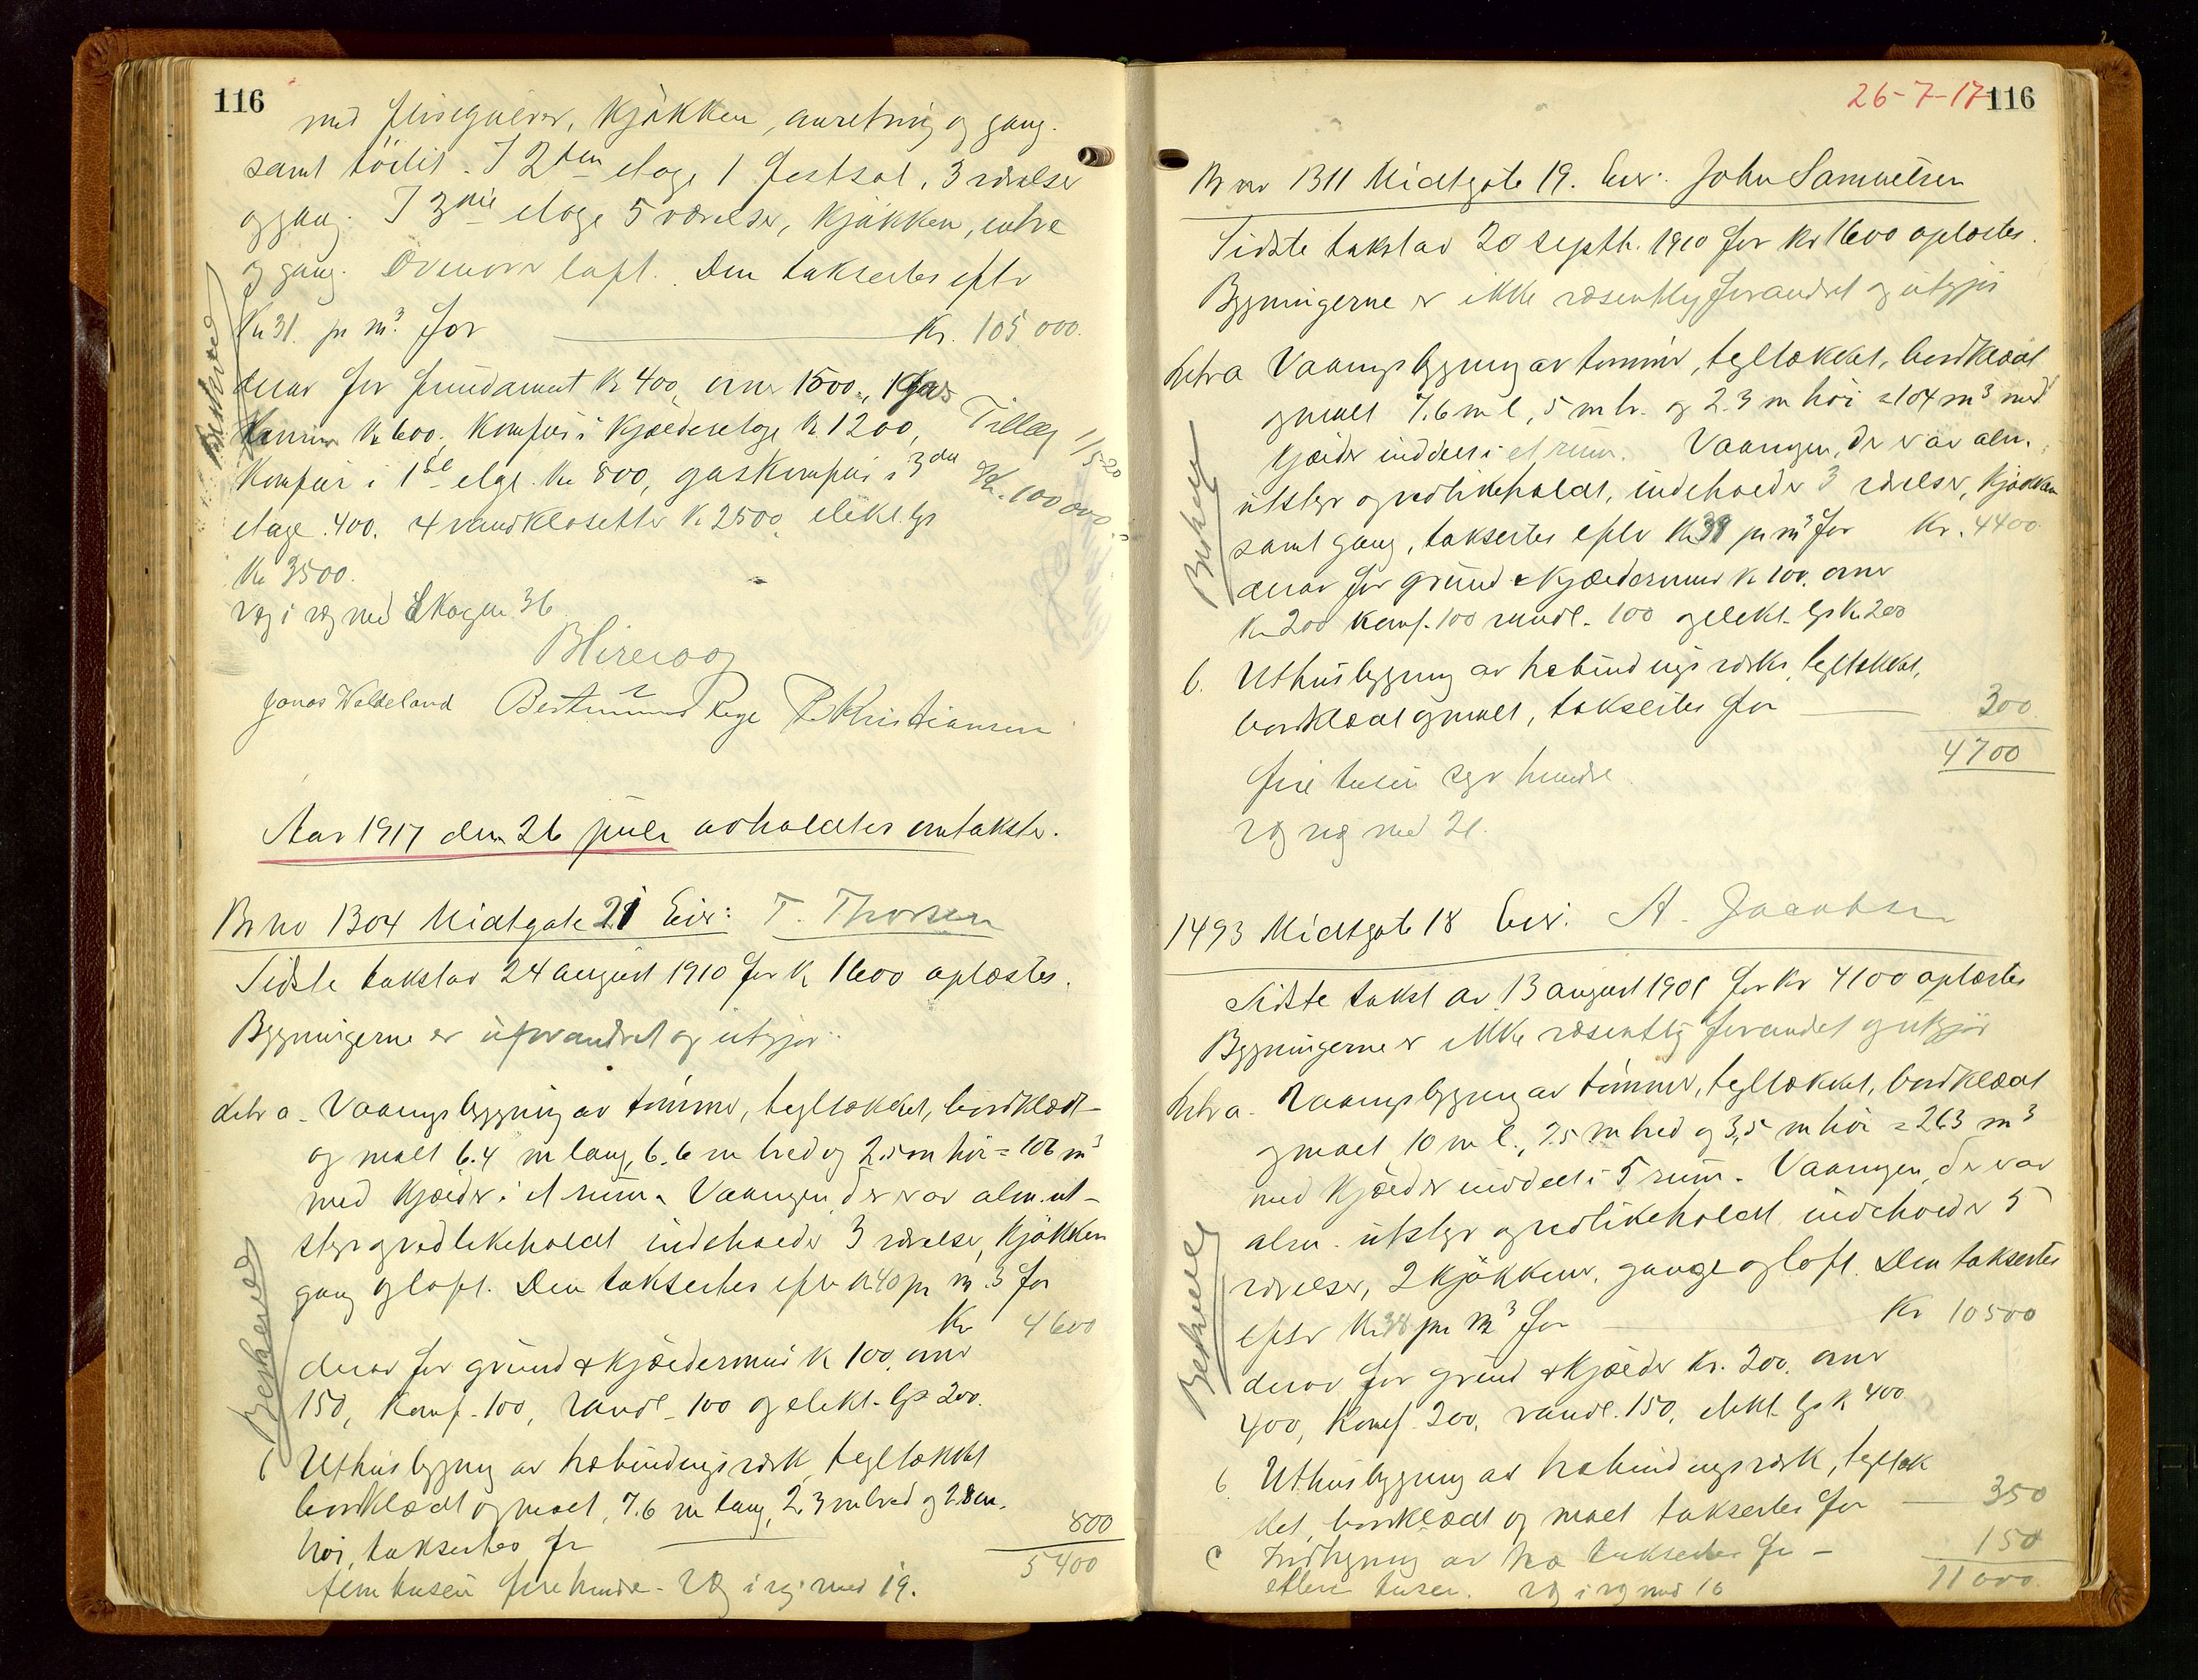 116
med flisegulver, kjøkken, anretning og gang.
samt toilit. I 2den etage 1 festsal, 3 værelser
og gang. I 3die etage 5 værelser, kjøkken, entre
og gang. Ovenover loft. Den taksertes efter
Kr 31. pr m³ for Kr. 105 000.
derav for fundament kr 400, ovner 1500.,
Kr 600. Komfur i kjælderetage kr 1200,
Komfur i 1ste etge. kr 800, gaskomfur i 3die
etage. 400. 4 vandklosetter kr 2500, elekt. lys
Kr 3500.
væg i væg med Skagen 36.
Tillæg 1/5-20
Kr. 100 000
Beskreved
Jonas Waldeland Bertinius Rege P. Kristiansen
Aar 1917 den 26 juli avholdtes omtakster.
Br no 1304 Midtgate 21 Eier: T. Thorsen
Sidste takst av 24 august 1910 for kr 1600 oplæstes.
Bygningerne er uforandret og utgjør:
Litra a. Vaaningsbygning av tømmer, tegltækket, bordklædt
og malt 6.4 m lang, 6.6 m bred og 2.5 m høi = 106 m³
med kjælder i et rum. Vaaningen, der er av alm. ut-
styr og vedlikeholdt indeholder 3 værelser, kjøkken
gang og loft. Den taksertes efter kr 40 pr m.3 for
Kr 4600
derav for grund & kjældermur kr 100, ovner
150, Komf. 100, vandl. 100 og elekt. lys 200.
Beskreved
b Uthusbygning av halvbindingsverk, tegltækket
bordklædt og malt, 7.6 m lang, 2.3 m bred og 2.8 m.
høi, taksertes for 800
5400
fem tusen fire hundre. Væg i væg med 19.
26-7-17 116
Br no 1311 Midtgate 19. Eier: John Samuelsen
Sidste takst av 20 septb. 1910 for kr 1600 oplæstes.
Bygningerne er ikke væsentlig forandret og utgjør
Litra a Vaaningsbygning av tømmer, tegltækket, bordklædt
og malt 7.6 m l, 5 m br. og 2.3 m høi = 104 m³ med
kjælder inddelt i et rum. Vaaningen, der er av alm.
utstyr og vedlikeholdt, indeholder 3 værelser, kjøkken
samt gang, taksertes efter kr 39 pr m³ for Kr. 4400
derav for grund & kjældermur kr 100, ovner
Kr 200 komf. 100 vandl. 100 og elekt. lys kr. 200
b. Uthusbygning av halvbindingsverk, tegltækket,
bordklædt og malt, taksertes for 300
4700
fire tusen syv hundre.
væg væg med 21.
1493 Midtgate 18 Eier: A. Jacobsen
Sidste takst av 13 august 1901 for Kr 4100 oplæstes
Bygningerne er ikke væsentlig forandret og utgjør
Litra a. Vaaningsbygning av tømmer, tegltækket, bordklædt
og malt 10 m l., 7.5 m bred og 3,5 m høi = 263 m³
med kjælder inddelt i 5 rum. Vaaningen, der er av
alm. utstyr og vedlikeholdt indeholder 5
værelser, 2 kjøkkener, gange og loft. Den taksertes
efter kr 38 pr m³ for Kr 10500
derav for grund & kjælder Kr. 200, ovner
400, Komf. 200, vandl. 150, elekt. lys kr 400.
Beskreved
b. Uthusbygning av halvbindingsverk, tegltæk
ket, bordklædt og malt taksertes for 350
c Indhegning av træ taksertes for 150
elleve tusen. væg i væg med 16 11000.